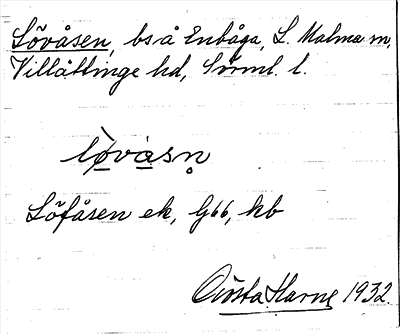 Lövåsen, bs å Enbåga, L. Malma sn,
Villåttinge hd, Sörml. l.
løvåsn̥
Löfåsen ek, G66, kb
Gösta Harne 1932.